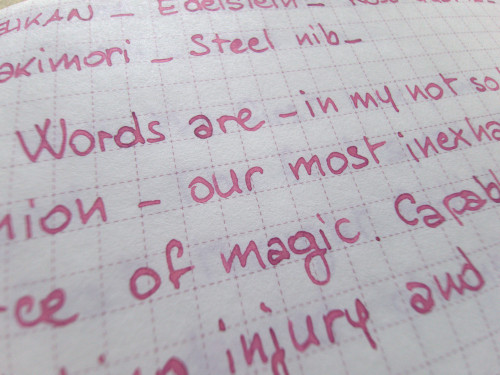 ELIKAN _ Edelstein _
akimori _ Steel nib _
Words are - in my not so
nion - our most inexha
ce of magic. Capab
injury and